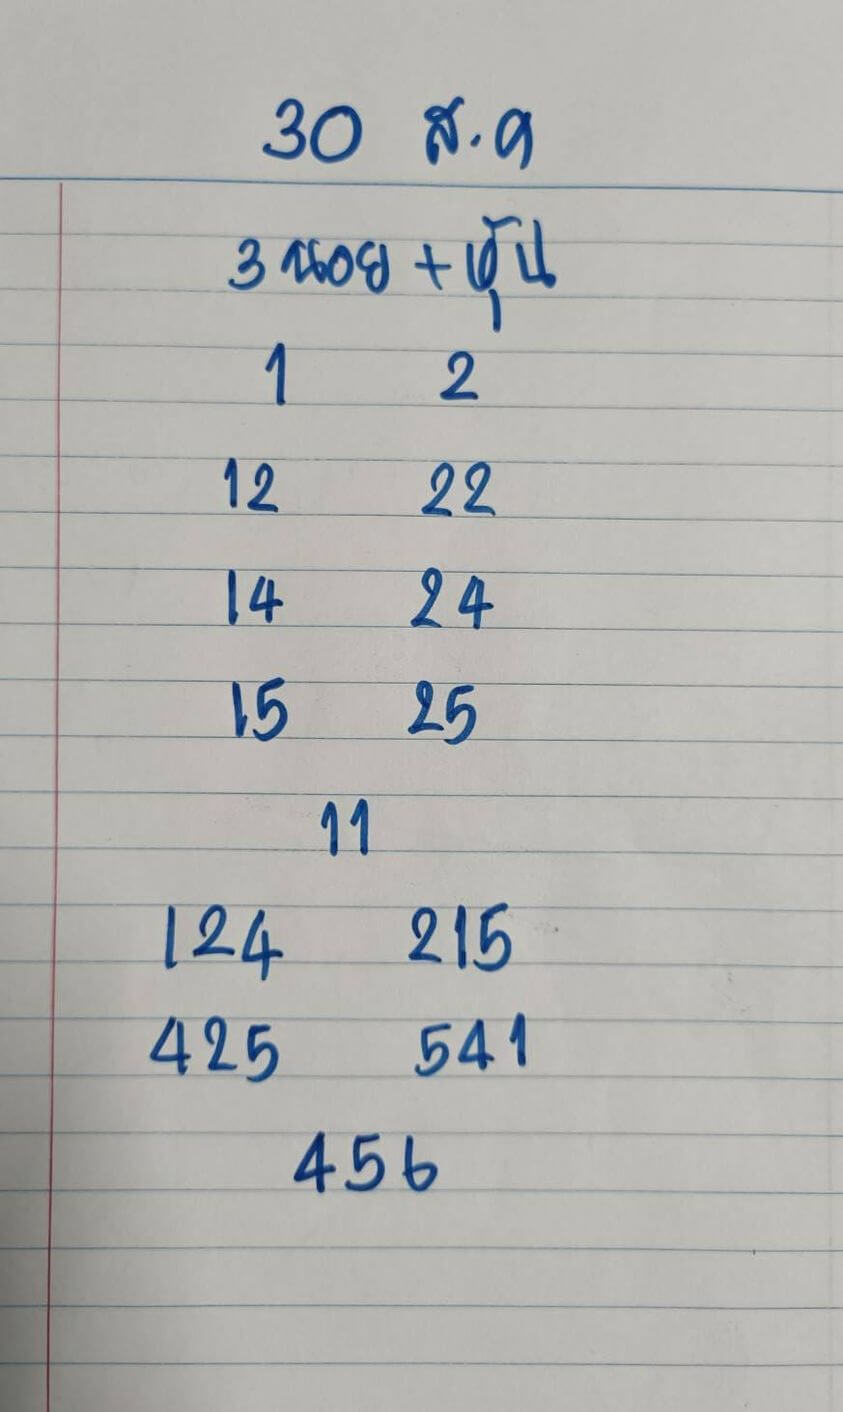 30 ส.ค
3 นอย + หุ้น
1 2
12 22
14 24
15 25
11
124 215
425 541
456